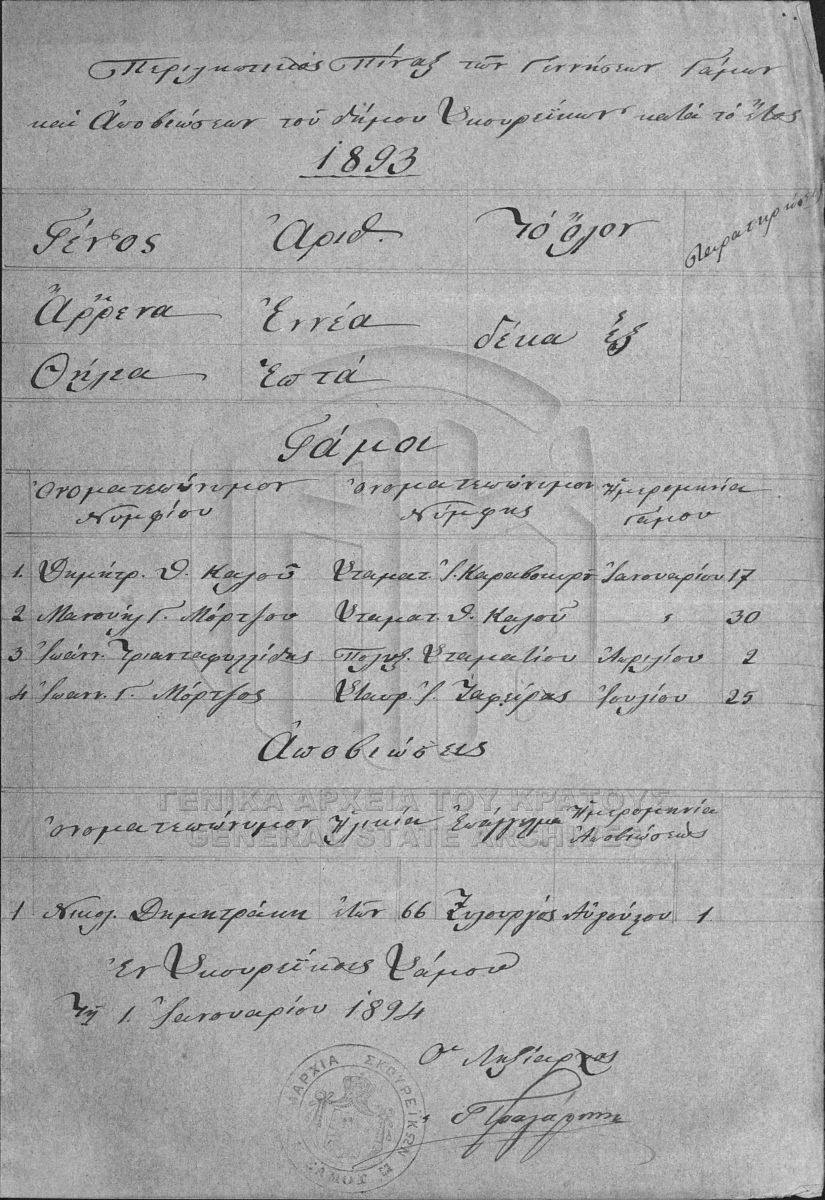 Περιληπτικὸς Πίναξ τῶν Γεννήσεων Γάμων
καὶ Ἀποβιώσεων τοῦ δήμου Σκουρεΐκων κατὰ τὸ ἔτος
1893
Γένος Ἀριθ. Τὸ ὅλον Παρατηρήσεις
Ἄῤῥενα Ἐννέα δέκα ἕξ
Θήλεα Ἑπτά
Γάμοι
Ὀνοματεπώνυμον Νυμφίου Ὀνοματεπώνυμον Νύμφης Ἡμερομηνία Γάμου
1. Δημήτρ. Θ. Καλοῦ Σταματ. Ἰ. Καραβοκυρ Ἰανουαρίου 17
2 Μανουὴλ Γ. Μόρτζου Σταματ. Θ. Καλοῦ " 30
3 Ἰωάνν. Τριανταφυλλίδης Πολυξ. Σταματίου Ἀπριλίου 2
4 Ἰωάνν. Γ. Μόρτζος Σταυρ. Ἰ. Ζαφείρης Ἰουλίου 25
Ἀποβιώσεις
Ὀνοματεπώνυμον Ἡλικία Ἐπάγγελμα Ἡμερομηνία Ἀποβιώσεως
1 Νικολ. Δημητράκη ἐτῶν 66 Ξυλουργός Αὐγούστου 1
Ἐν Σκουρεΐκοις Σάμου
Τῇ 1. Ἰανουαρίου 1894
Ὁ Ληξίαρχος
ΔΗΜΑΡΧΙΑ ΣΚΟΥΡΕΙΚΩΝ
ΣΑΜΟΥ
ΓΕΝΙΚΑ ΑΡΧΕΙΑ ΤΟΥ ΚΡΑΤΟΥΣ
GENERAL STATE ARCHIVES